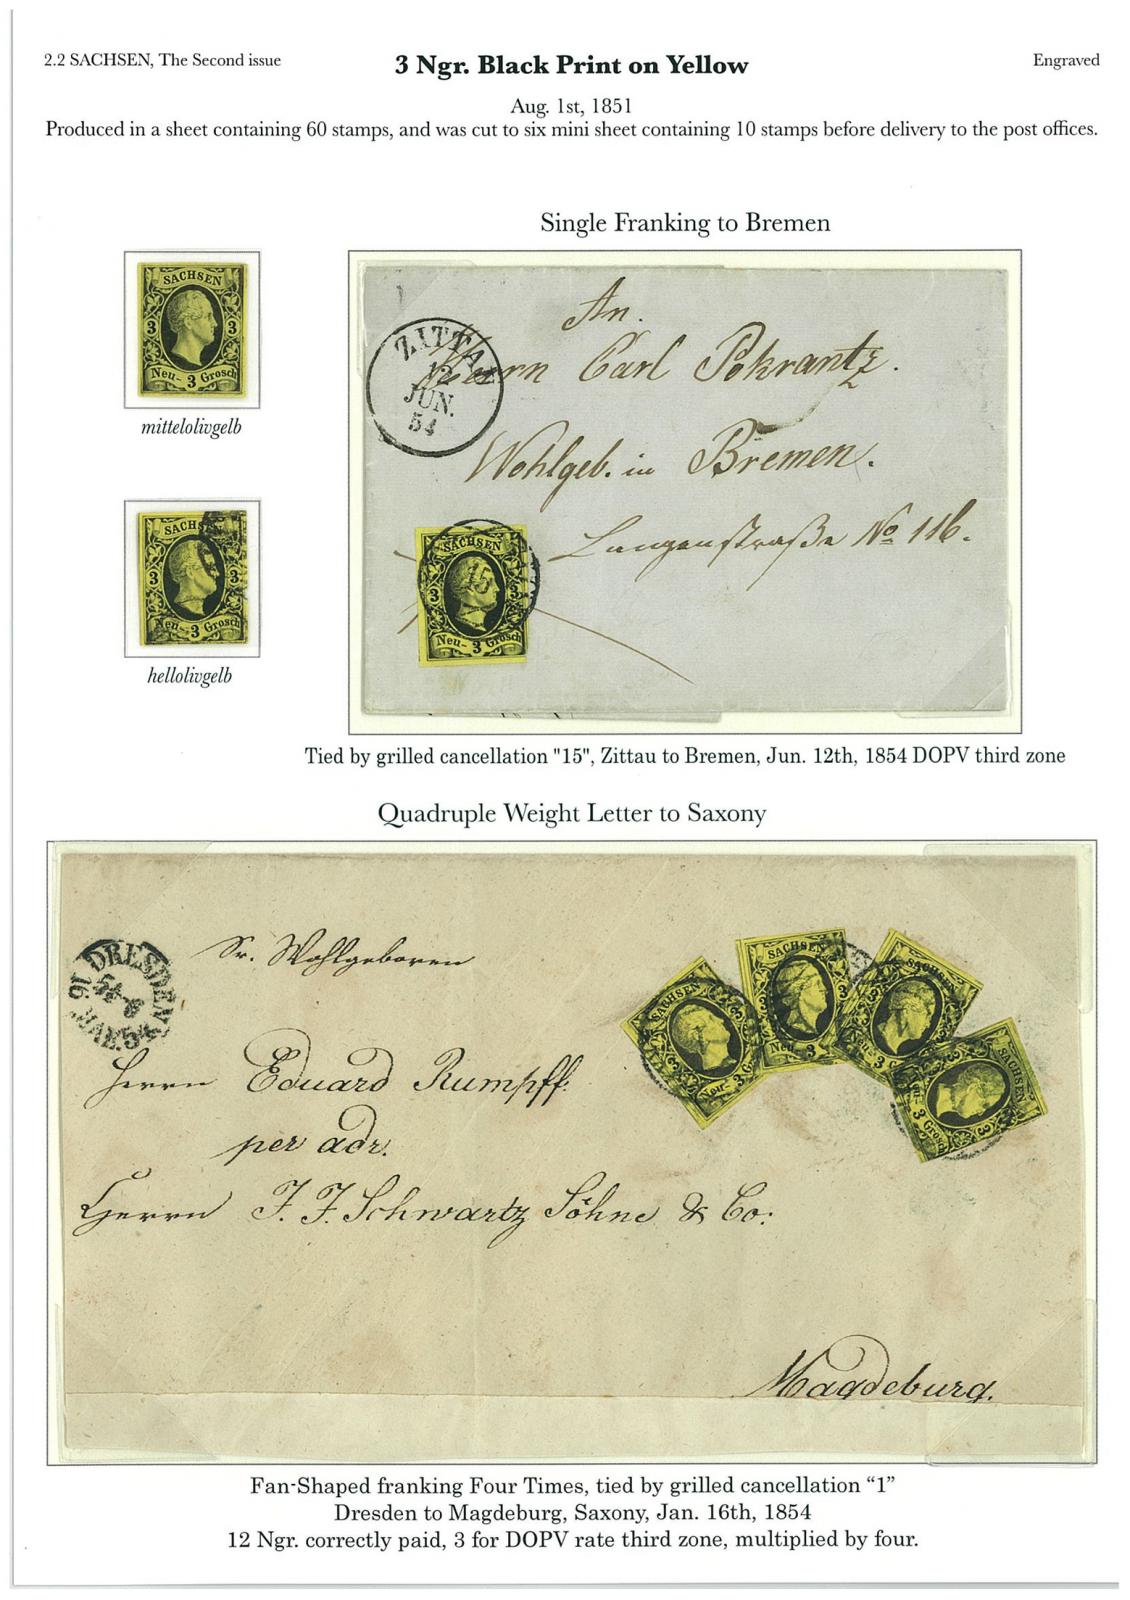 2.2 SACHSEN, The Second issue
3 Ngr. Black Print on Yellow
Engraved
Aug. 1st, 1851
Produced in a sheet containing 60 stamps, and was cut to six mini sheet containing 10 stamps before delivery to the post offices.
SACHSEN
3 3
Neu- 3 Grosch
mittelolivgelb
SACHSEN
3 3
Neu- 3 Grosch
hellolivgelb
Single Franking to Bremen
ZITTA
12
JUN.
54
An.
Herrn Carl Pokrantz.
Wohlgeb. in Bremen.
Langenstraße No 116.
SACHSEN
3 3
Neu- 3 Grosch
Tied by grilled cancellation "15", Zittau to Bremen, Jun. 12th, 1854 DOPV third zone
Quadruple Weight Letter to Saxony
DRESDEN
Sr. Wohlgeboren
Herrn Eduard Rumpff.
per adr.
Herrn J. F. Schwartz Söhne & Co:
Magdeburg.
SACHSEN
Neu- 3 Gro
SACHSEN
Ne 3
SACHSEN
3 G
SACHSEN
3 Grosch
Fan-Shaped franking Four Times, tied by grilled cancellation “1”
Dresden to Magdeburg, Saxony, Jan. 16th, 1854
12 Ngr. correctly paid, 3 for DOPV rate third zone, multiplied by four.